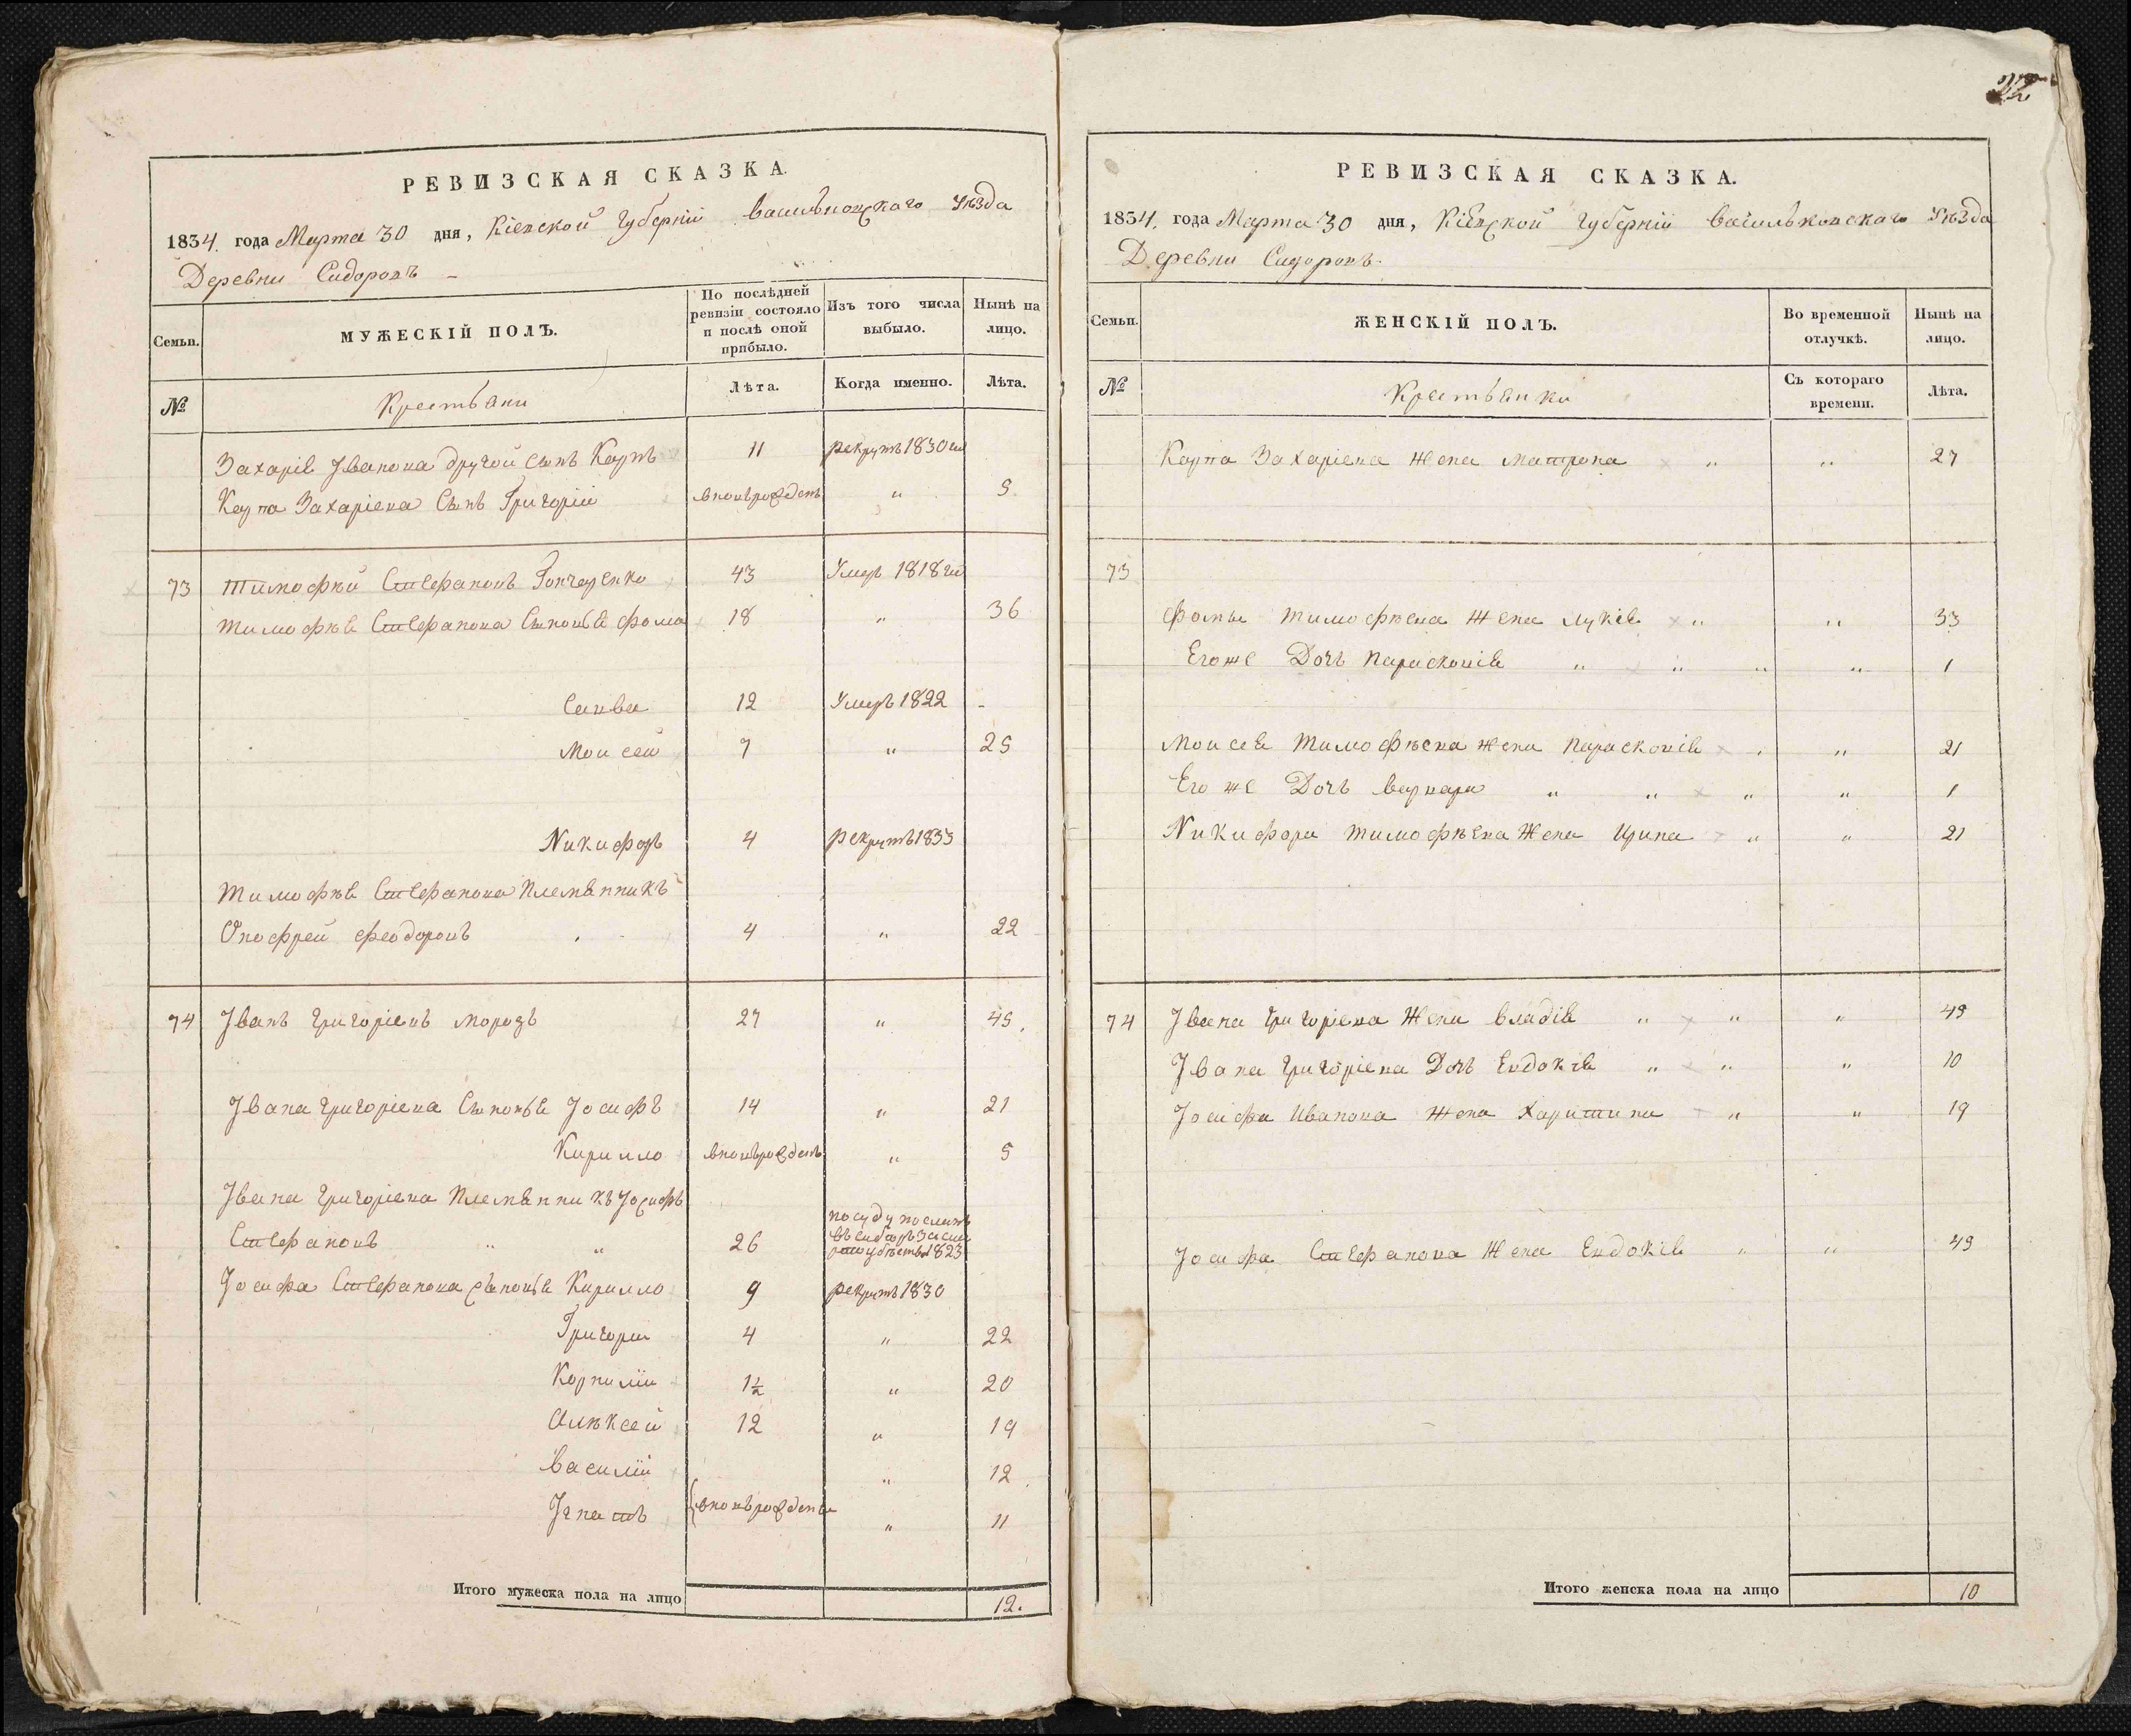 РЕВИЗСКАЯ СКАЗКА.
1834. года Марта 30 дня, Кіевской Губерніи Васильковскаго Уѣзда
Деревни Сидоровъ
Семьи.
МУЖЕСКІЙ ПОЛЪ.
По послѣдней ревизіи состояло и послѣ оной прибыло.
Изъ того числа выбыло.
Нынѣ на лицо.
№
Крестьяни
Лѣта.
Когда именно.
Лѣта.
Захарія Іванова другой сынъ Карпъ 11 рекрутъ 1830
Карпа Захаріева Сынъ Григорій вновьрожденъ " 5
73 Тимофѣй Стефановъ Гончаренко 43 Умеръ 1818
Тимофѣя Стефанова Сыновья Фома 18 " 36
Савва 12 Умеръ 1822 -
Моисей 7 " 25
Никифоръ 4 рекрутъ 1833
Тимофѣя Стефанова Племянникъ
Онофрей Феодоровъ 4 " 22
74 Іванъ Григоріевъ Морозъ 27 " 45.
Івана Григоріева Сыновья Іосифъ 14 " 21
Кирилло вновьрожденъ " 5
Івана Григоріева Племянникъ Іосифъ
Стефановъ " " 26 по суду посланъ въ 1823
Іосифа Стефанова сыновья Кирилло 9 рекрутъ 1830
Григори 4 " 22
Корнилій 1½ " 20
Алѣксей 12 " 19
Василій " 12
Ігнатъ вновьрожденъ " 11
Итого мужеска пола на лицо 12.
РЕВИЗСКАЯ СКАЗКА.
1834. года Марта 30 дня, Кіевской Губерніи Васильковскаго Уѣзда
Деревни Сидоровъ.
Семьи.
ЖЕНСКІЙ ПОЛЪ.
Во временной отлучкѣ.
Нынѣ на лицо.
№
Крестьянки
Съ котораго времени.
Лѣта.
Карпа Захаріева жена Матрона " " 27
73
Фомы Тимофѣева Жена Лукія " " 33
Егоже Дочь Параскевія " " " " 1
Моисея Тимофѣева жена Параскевія " " 21
Его же Дочь Варвара " " " " 1
Никифора Тимофѣева Жена Ирина " " 21
74 Івана Григоріева Жена Владія " " " 49
Івана Григоріева Дочь Евдокія " " " 10
Іосифа Иванова Жена Харитина " " 19
Іосифа Стефанова Жена Евдокія " " 49
Итого женска пола на лицо 10